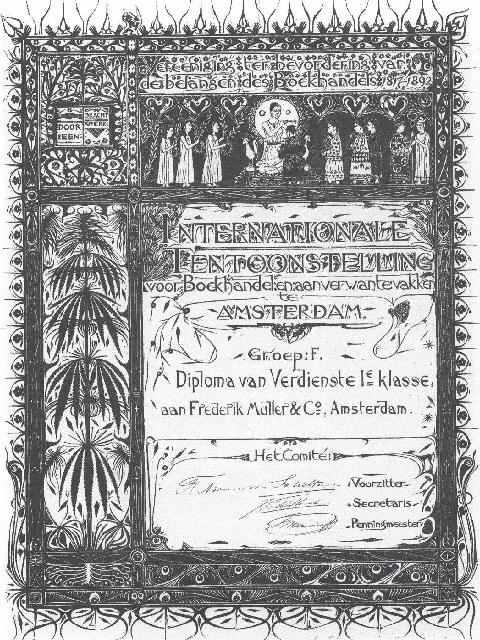 Vereeniging ter bevordering van
de belangen des Boekhandels 1817-1892
DOOR EEN-
DRACHT
STERK
INTERNATIONALE
TENTOONSTELLING
voor Boekhandel en aanverwante vakken
te
AMSTERDAM
Groep: F.
Diploma van Verdienste 1e klasse,
aan Frederik Muller & Co., Amsterdam.
Het Comité:
Voorzitter
Secretaris
Penningmeester